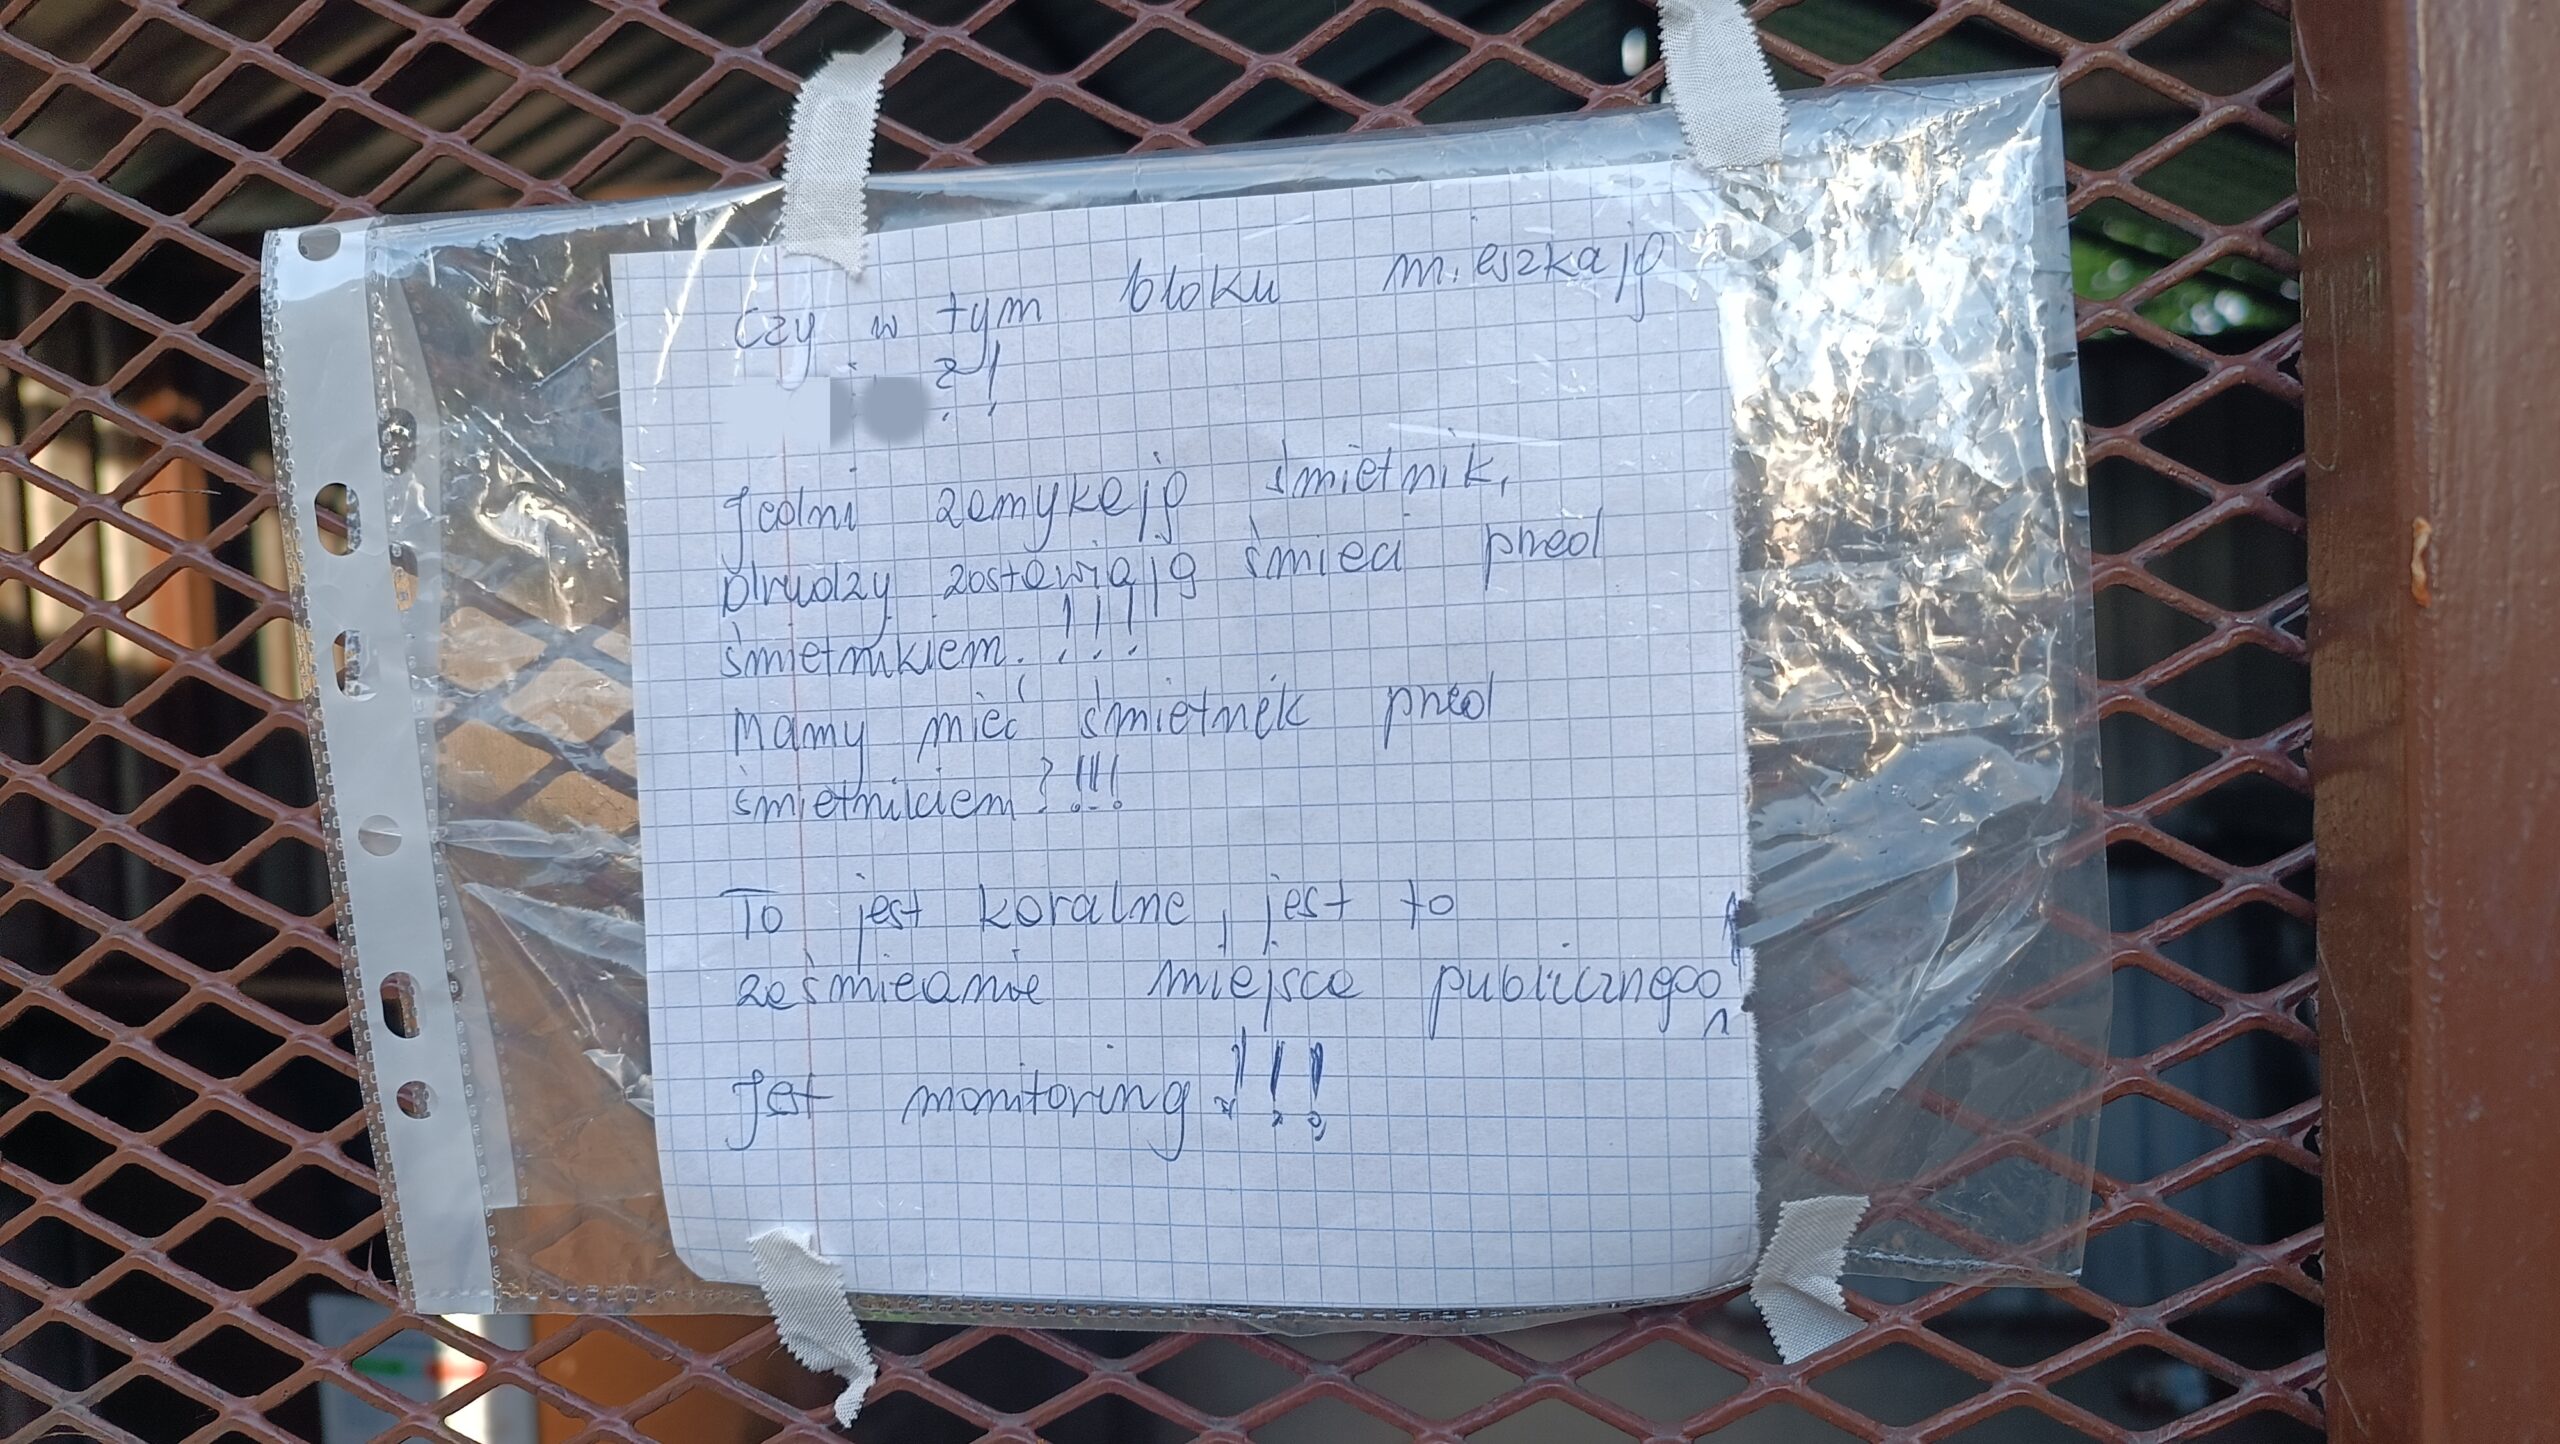 Czy w tym bloku mieszkają
?!
Jedni zamykają śmietnik,
drudzy zostawiają śmieci przed
śmietnikiem. !!!
Mamy mieć śmietnik przed
śmietnikiem?!!!
To jest karalne, jest to
zaśmiecanie miejsca publicznego!
Jest monitoring!!!